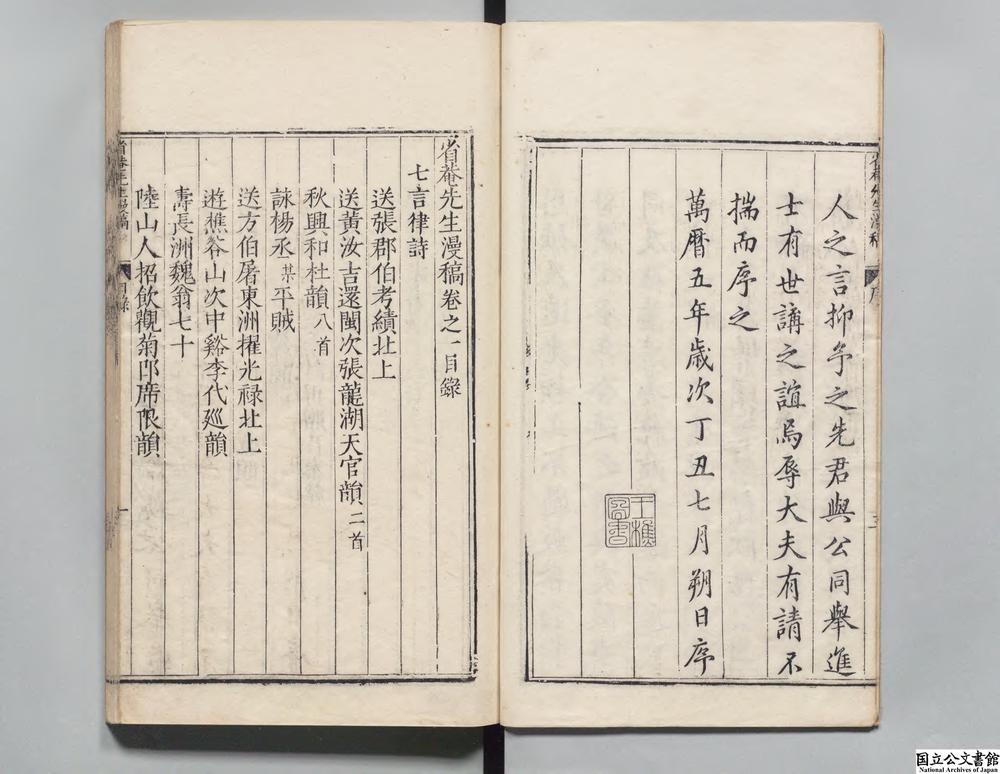 人之言抑予之先君與公同舉進
士有世講之誼焉辱大夫有請不
揣而序之
萬曆五年歲次丁丑七月朔日序
王樵
省菴先生漫稿卷之一目錄
七言律詩
送張郡伯考績北上
送黃汝吉還閩次張龍湖天官韻二首
秋興和杜韻八首
詠楊丞某平賊
送方伯屠東洲擢光祿北上
遊樵谷山次中谿李代巡韻
壽長洲魏翁七十
陸山人招飲觀菊即席限韻
省菴先生漫稿
目錄
一
省菴先生漫稿
序
国立公文書館
National Archives of Japan